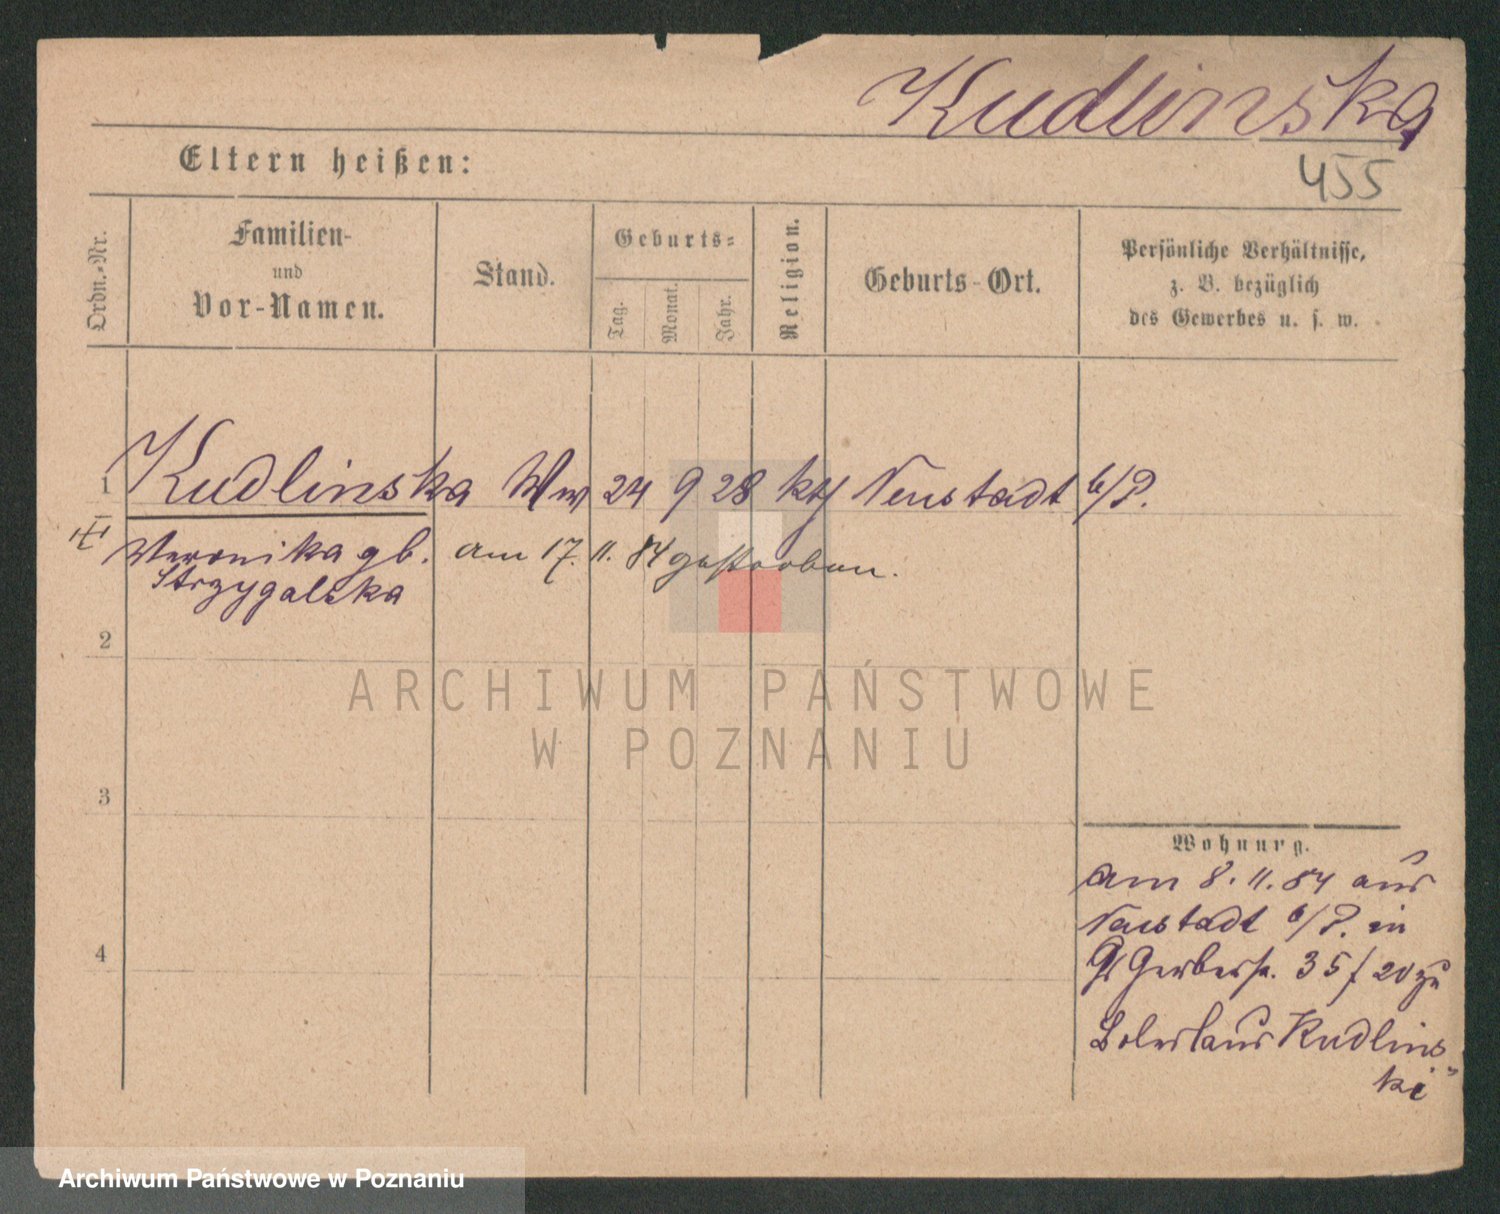 Kudlinska
455
Eltern heißen:
Ordn.-Nr.
Familien-
und
Vor-Namen.
Stand.
Geburts-
Tag.
Monat.
Jahr.
Religion.
Geburts-Ort.
Persönliche Verhältnisse,
z. B. bezüglich
des Gewerbes u. s. w.
1 Kudlinska Ww 24 9 28 kth Neustadt b/P.
Veronika gb. am 17. 11. 84 gestorben.
Strzygalska
2
ARCHIWUM PAŃSTWOWE
W POZNANIU
3
Wohnung.
am 8. 11. 84 aus
Neustadt b/P. in
Gr Gerberstr. 35 / 20 zu
Boleslaus Kudlins
ki
4
Archiwum Państwowe w Poznaniu